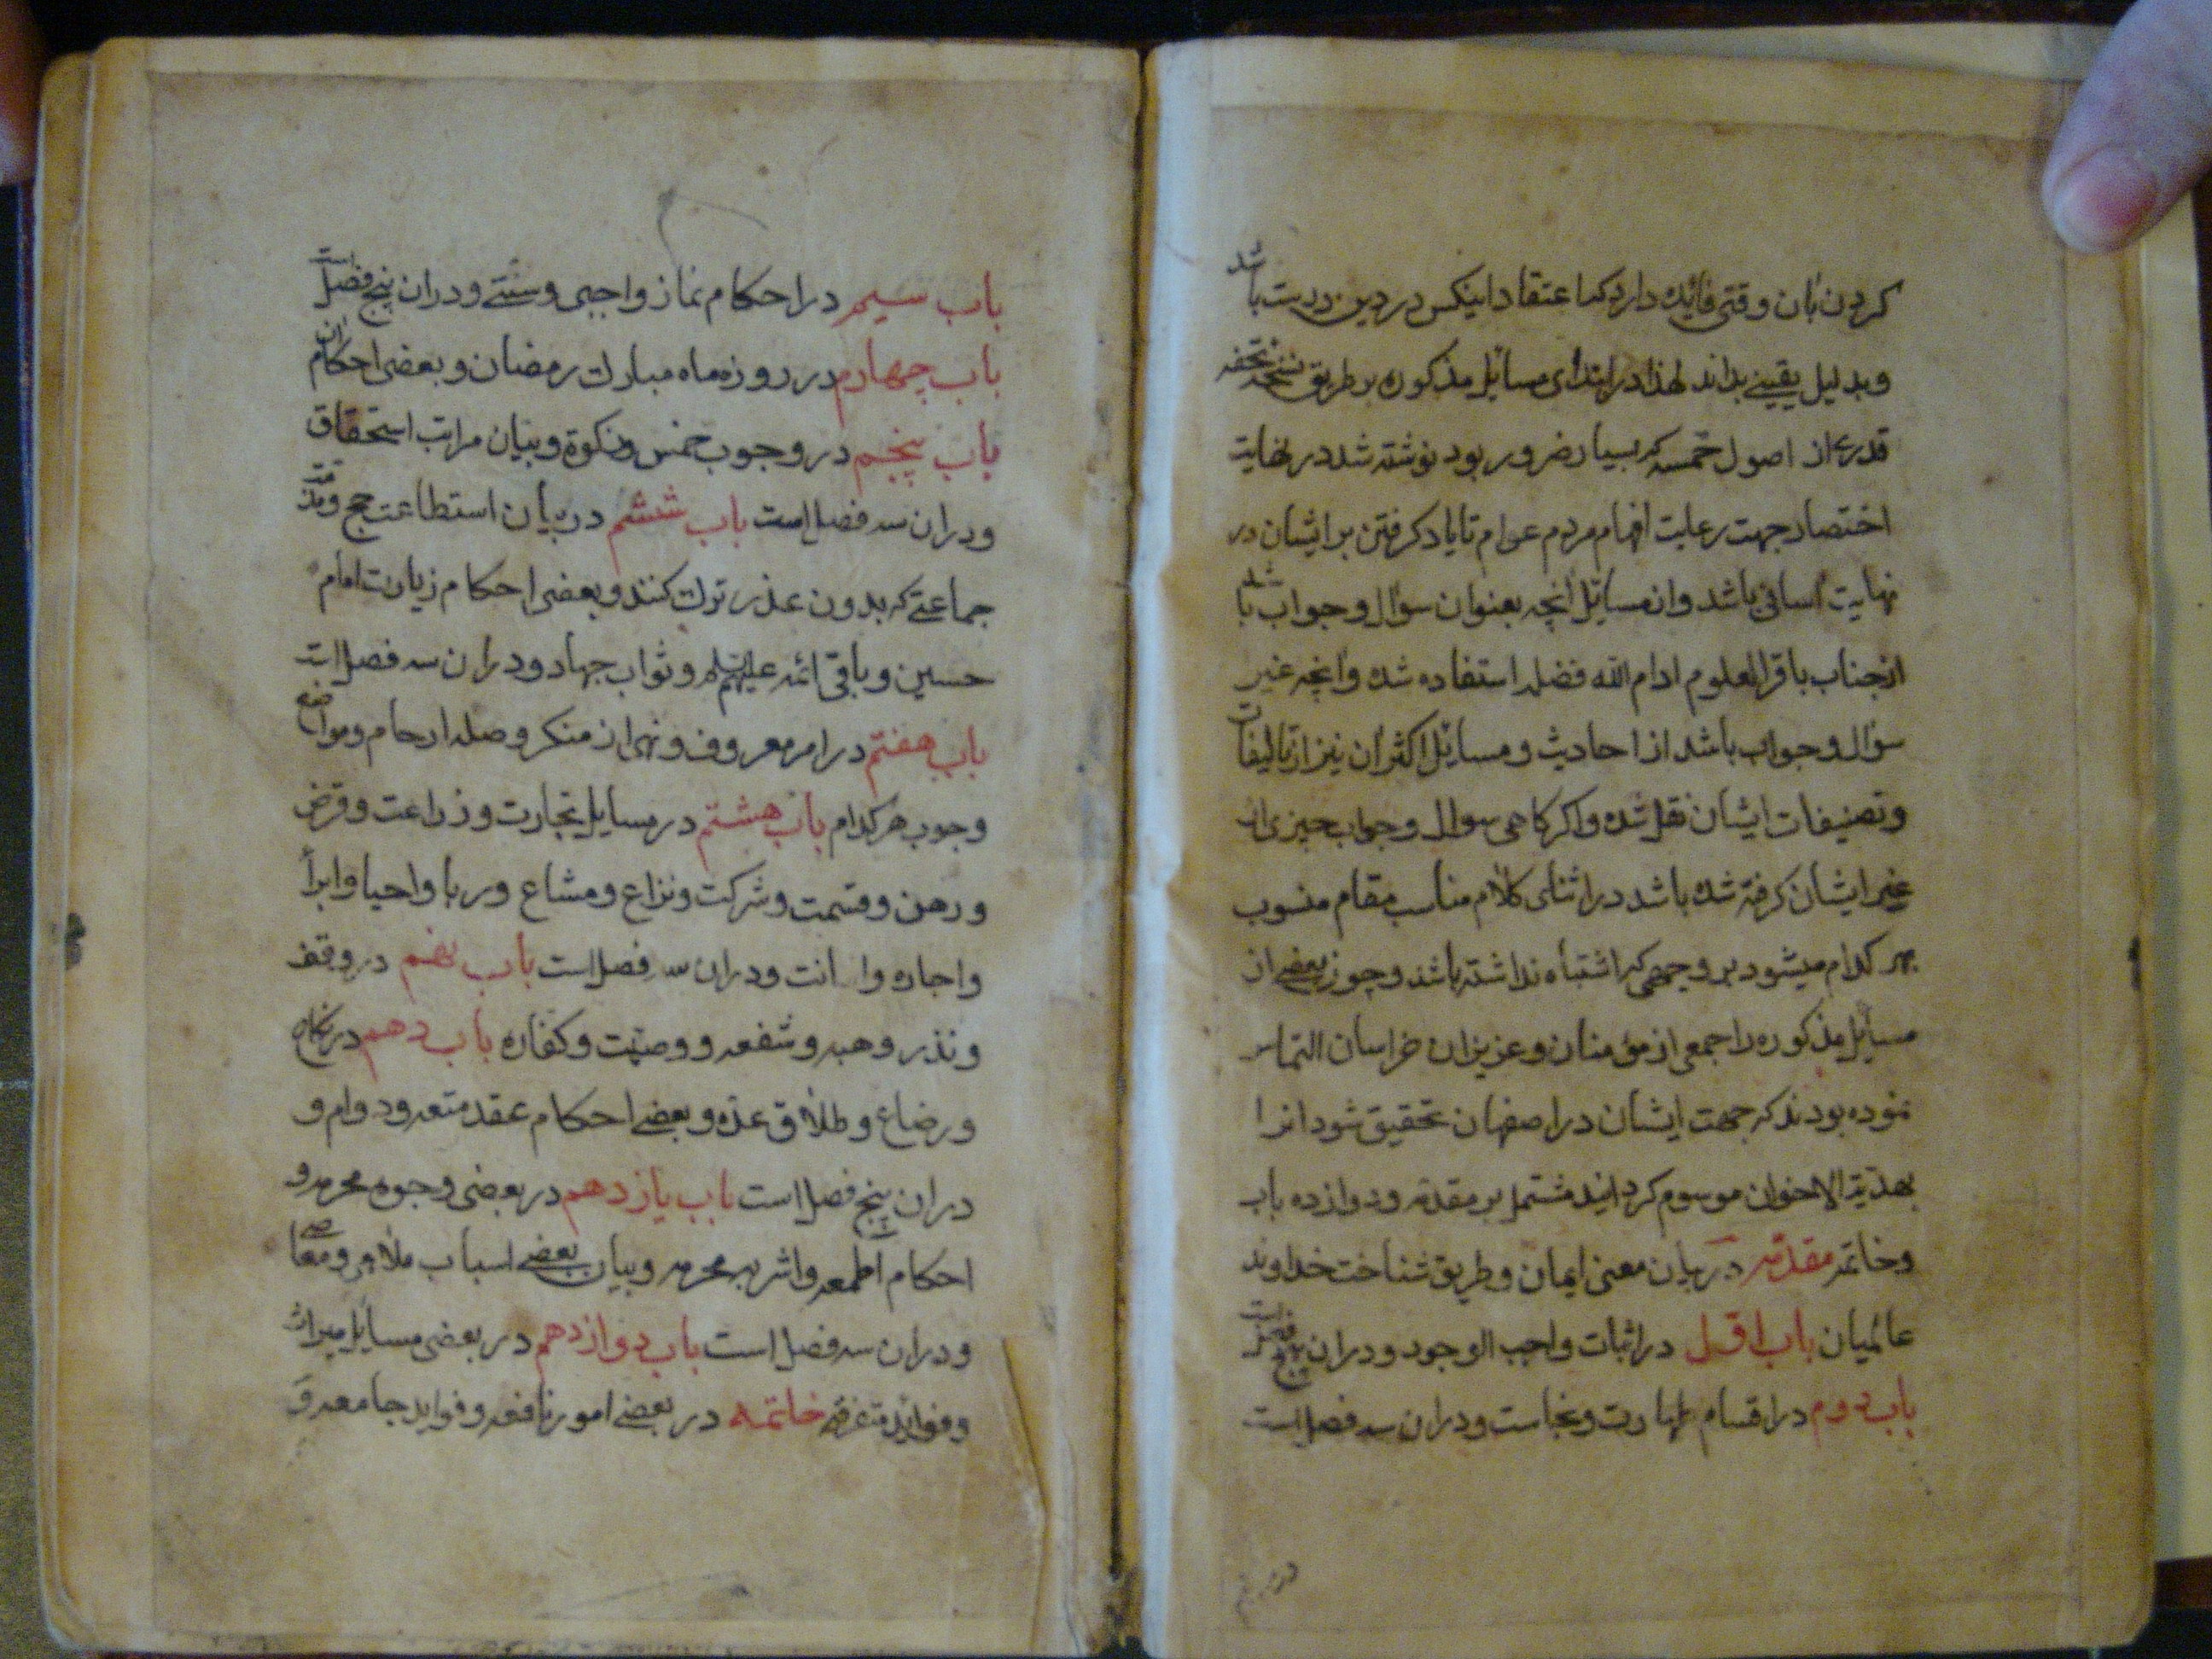 کردن بان وقتی فائده دارد که اعتقاد اینکس در دین درست باشد
وبدلیل یقینی بداند لهذا در ابتدای مسایل مذکوره بر طریق تحفه
قدری از اصول خمسه که بسیار ضرور بود نوشته شد در نهایت
اختصار جهت رعایت افهام مردم عوام تا یاد کرفتن بر ایشان در
نهایت آسانی باشد وان مسائل آنچه بعنوان سؤال وجواب باشد
ازجناب باقر العلوم ادام الله فضله استفاده شده وآنچه غیر
سؤال وجواب باشد از احادیث ومسایل اکثر آن نیز از تألیفات
وتصنیفات ایشان نقل شده واکر کاهی سوال وجواب چیزی از
غیر ایشان کرفته شده باشد در اثنای کلام مناسب مقام منسوب
بهر کدام میشود بر وجهی که اشتباه نداشته باشد وچون بعضی از
مسایل مذکوره را جمعی از مؤمنان وعزیزان خراسان التماس
نموده بودند که جهت ایشان در اصفهان تحقیق شود انرا
بهدیة الاخوان موسوم کردانید مشتمل بر مقدمه ودوازده باب
وخاتمه مقدمه در بیان معنی ایمان وطریق شناخت خداوند
عالمیان باب اول در اثبات واجب الوجود ودران پنج فصل است
باب دوم در اقسام طهارت ونجاست ودران سه فصل است
باب سیم در احکام نماز واجبی وسنتی ودران پنج فصل است
باب چهارم در روزه ماه مبارک رمضان وبعضی احکام آن
باب پنجم در وجوب خمس وزکوة وبیان مراتب استحقاق
ودران سه فصل است باب ششم در بیان استطاعت حج ومذمت
جماعتی که بدون عذر ترک کنند وبعضی احکام زیارت امام
حسین وباقی ائمه علیهم السلم وثواب جهاد ودران سه فصل است
باب هفتم در امر معروف ونهی از منکر وصله ارحام ومواضع
وجوب هر کدام باب هشتم در مسایل تجارت وزراعت وقرض
ورهن وقسمت وشرکت ونزاع ومشاع وربا واحیا وابرأ
واجاره ودران سه فصل است باب نهم در وقف
ونذر وهبه وشفعه ووصیت وکفاره باب دهم در نکاح
ورضاع وطلاق عدّه وبعضی احکام عقد متعه ودوام و
دران پنج فصل است باب یازدهم در بعضی وجوه محرمه و
احکام اطعمه واشربه محرمه وبیان بعضی اسباب ملاهی ومعاصی
ودران سه فصل است باب دوازدهم در بعضی مسایل میراث
وفواید متفرقه خاتمه در بعضی امور نافعه وفواید جامعه و